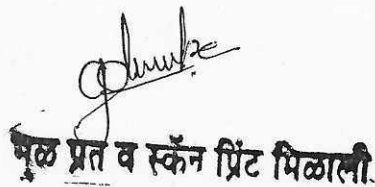 मुळ प्रत व स्कॅन प्रिंट मिळाली.